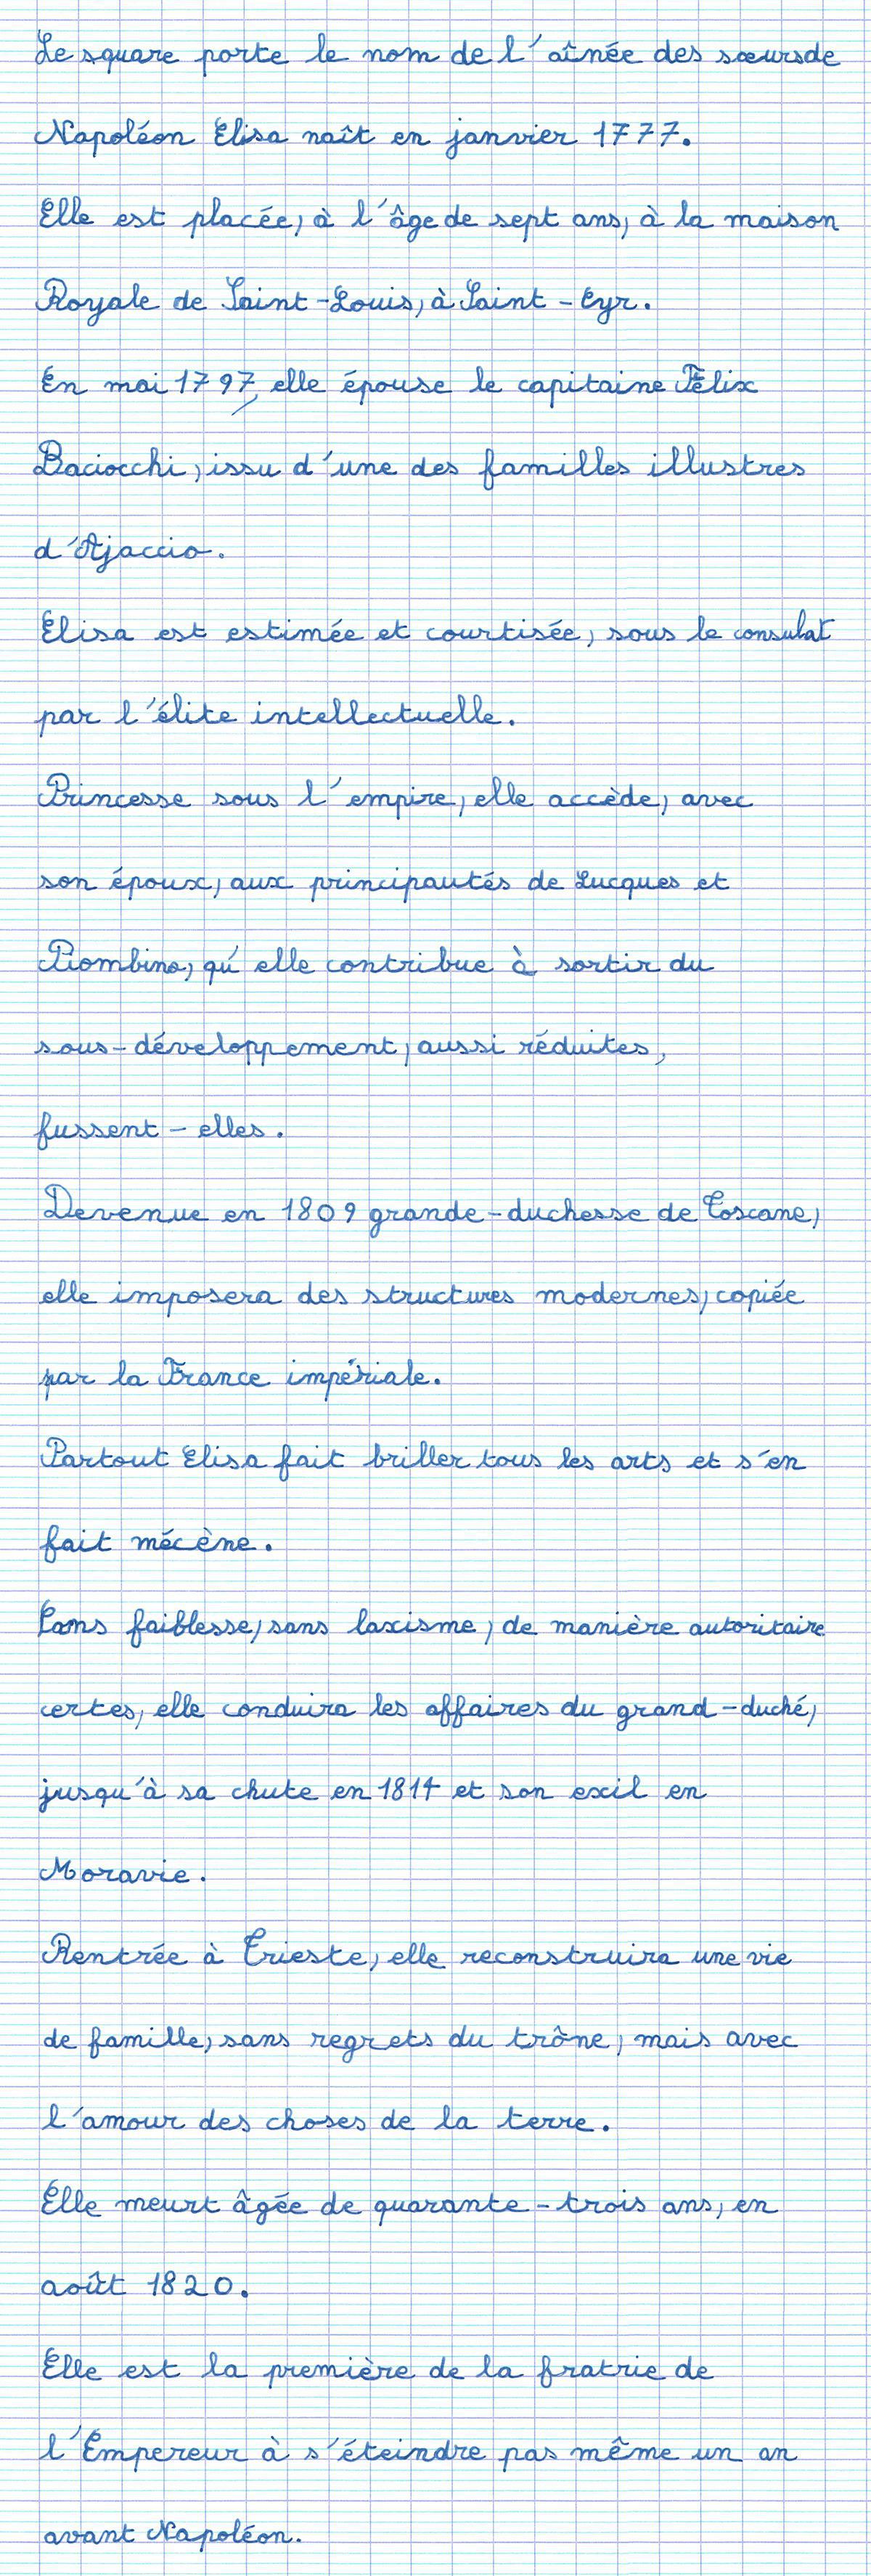 Le square porte le nom de l'aînée des sœurs de
Napoléon Elisa naît en janvier 1777.
Elle est placée, à l'âge de sept ans, à la maison
Royale de Saint-Louis, à Saint-Cyr.
En mai 1797, elle épouse le capitaine Félix
Baciocchi, issu d'une des familles illustres
d'Ajaccio.
Elisa est estimée et courtisée, sous le consulat
par l'élite intellectuelle.
Princesse sous l'empire, elle accède, avec
son époux, aux principautés de Lucques et
Piombino, qu'elle contribue à sortir du
sous-développement, aussi réduites,
fussent-elles.
Devenue en 1809 grande-duchesse de Toscane,
elle imposera des structures modernes, copiée
par la France impériale.
Partout Elisa fait briller tous les arts et s'en
fait mécène.
Sans faiblesse, sans laxisme, de manière autoritaire
certes, elle conduira les affaires du grand-duché,
jusqu'à sa chute en 1814 et son exil en
Moravie.
Rentrée à Trieste, elle reconstruira une vie
de famille, sans regrets du trône, mais avec
l'amour des choses de la terre.
Elle meurt âgée de quarante-trois ans, en
août 1820.
Elle est la première de la fratrie de
l'Empereur à s'éteindre pas même un an
avant Napoléon.